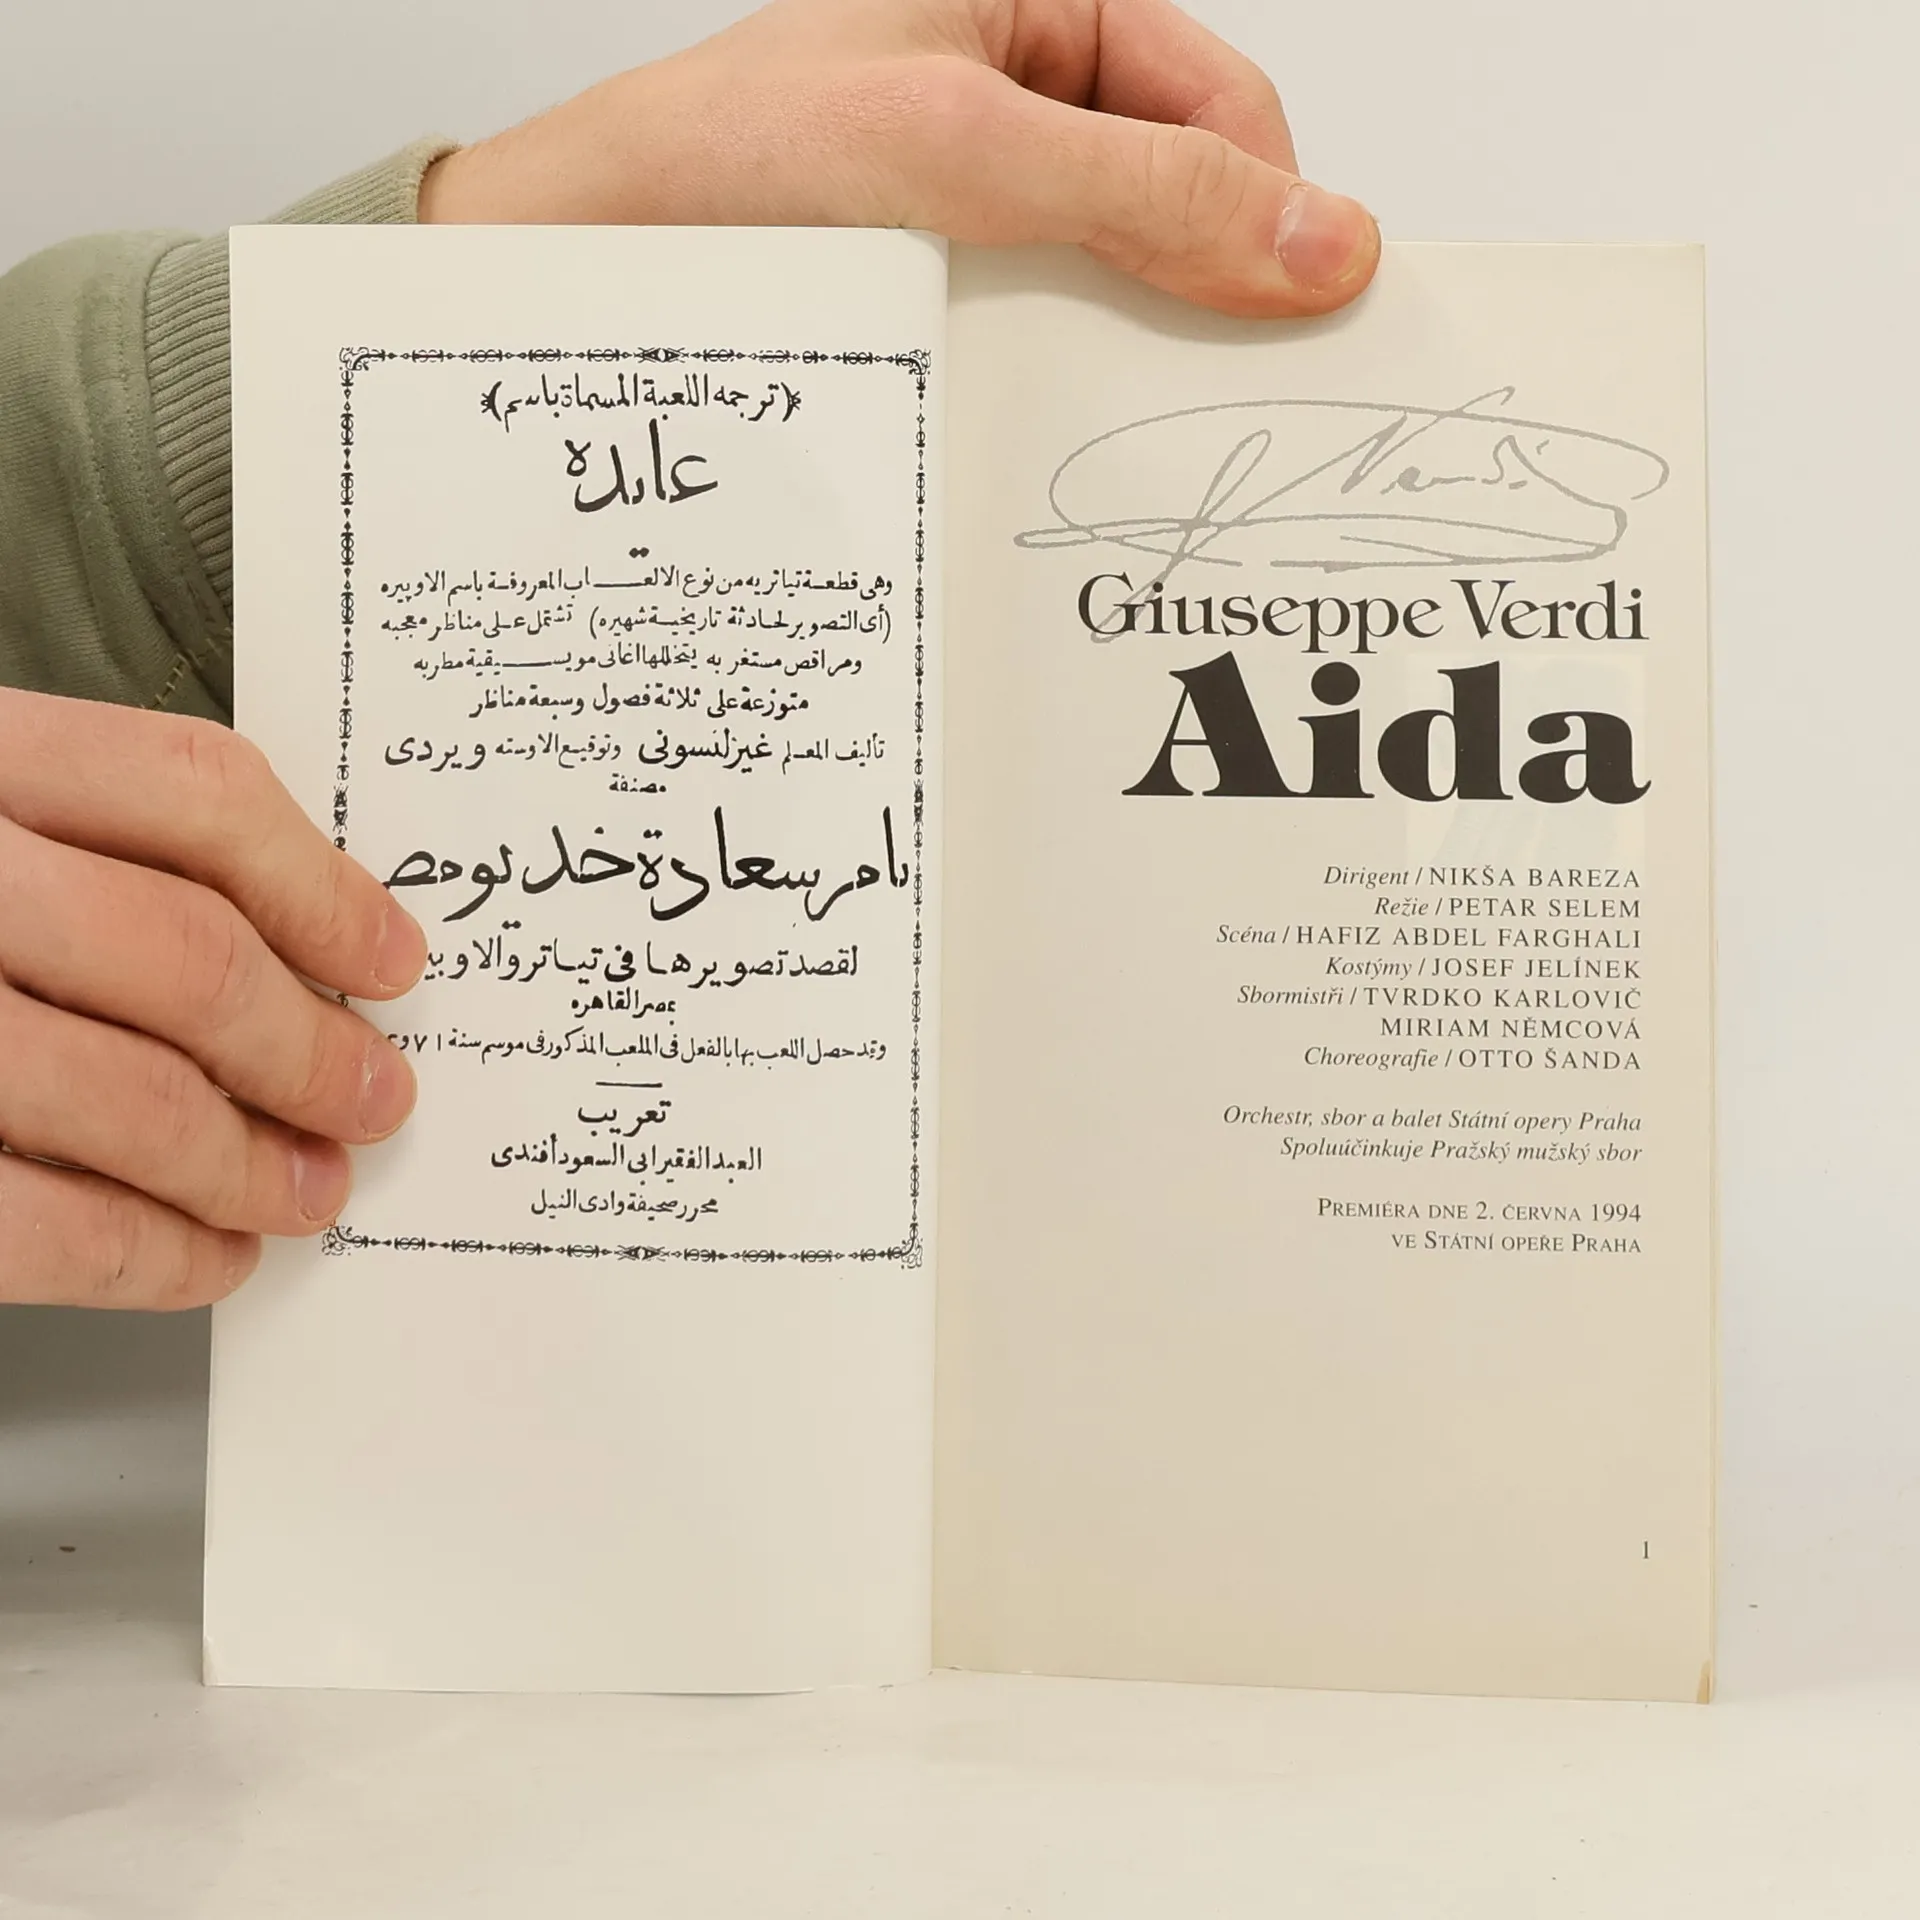 (ترجمه اللعبة المسماة باسم)
عايده
وهى قطعة تياتريه من نوع الالعاب المعروفة باسم الاوبيره
(أى التصوير لحادثة تاريخية شهيره) تشتمل على مناظر معجبه
ومراقص مستغربه يتخللها اغانى مويسيقية مطربه
متوزعة على ثلاثة فصول وسبعة مناظر
تأليف المعلم غيزلنسونى وتوقيع الاوسته ويردى
مصنفة
بامر سعادة خديو مصر
لقصد تصويرها فى تياترو الاوبيره
بمصر القاهره
وقد حصل اللعب بها بالفعل فى الملعب المذكور فى موسم سنة
تعريب
العبد الفقير ابى السعود أفندى
محرر صحيفة وادى النيل
G Verdi
Giuseppe Verdi
Aida
Dirigent / NIKŠA BAREZA
Režie / PETAR SELEM
Scéna / HAFIZ ABDEL FARGHALI
Kostýmy / JOSEF JELÍNEK
Sbormistři / TVRDKO KARLOVIČ
MIRIAM NĚMCOVÁ
Choreografie / OTTO ŠANDA
Orchestr, sbor a balet Státní opery Praha
Spoluúčinkuje Pražský mužský sbor
PREMIÉRA DNE 2. ČERVNA 1994
VE STÁTNÍ OPEŘE PRAHA
1